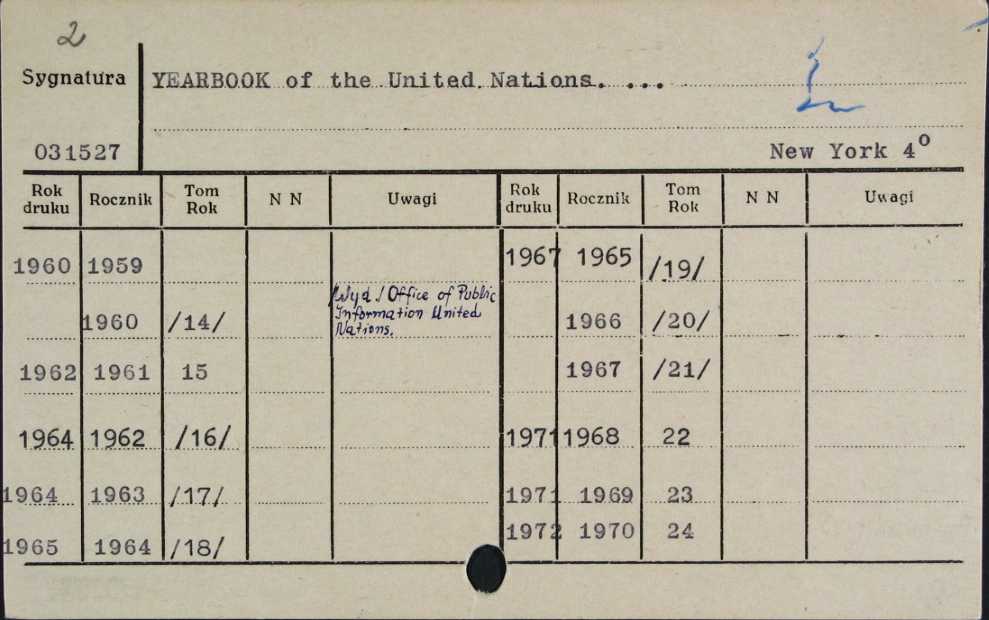 2
Sygnatura YEARBOOK of the United Nations. ...
031527 New York 4⁰
Rok druku Rocznik Tom Rok N N Uwagi Rok druku Rocznik Tom Rok N N Uwagi
1960 1959 1967 1965 /19/
1960 /14/ Wyd / Office of Public 1966 /20/
Information United
Nations.
1962 1961 15 1967 /21/
1964 1962 /16/ 1971 1968 22
1964 1963 /17/ 1971 1969 23
1965 1964 /18/ 1972 1970 24